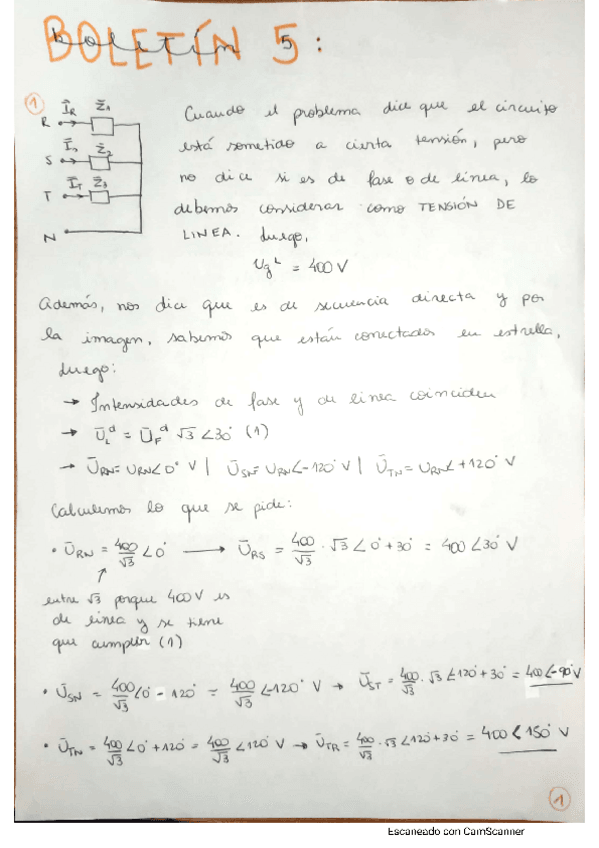 BOLETÍN 5:
boletín 5
1
R I_R Z̄1
S I_S Z̄2
T I_T Z̄3
N
Cuando el problema dice que el circuito
está sometido a cierta tensión, pero
no dice si es de fase o de línea, lo
debemos considerar como TENSIÓN DE
LINEA. Luego,
Ug^L = 400 V
Además, nos dice que es de secuencia directa y por
la imagen, sabemos que están conectados en estrella,
Luego:
→ Intensidades de fase y de línea coinciden
→ Ū_L^d = Ū_F^d √3 ∠30° (1)
→ Ū_RN = U_RN∠0° V | Ū_SN = U_RN∠-120° V | Ū_TN = U_RN∠+120° V
Calculemos lo que se pide:
• Ū_RN = 400/√3 ∠0° → Ū_RS = 400/√3 · √3 ∠0°+30° = 400∠30° V
entre √3 porque 400 V es
de línea y se tiene
que cumplir (1)
• Ū_SN = 400/√3 ∠0° - 120° = 400/√3 ∠-120° V → Ū_ST = 400/√3 · √3 ∠120°+30° = 400∠-90° V
• Ū_TN = 400/√3 ∠0°+120° = 400/√3 ∠120° V → Ū_TR = 400/√3 · √3 ∠120°+30° = 400∠150° V
1
Escaneado con CamScanner